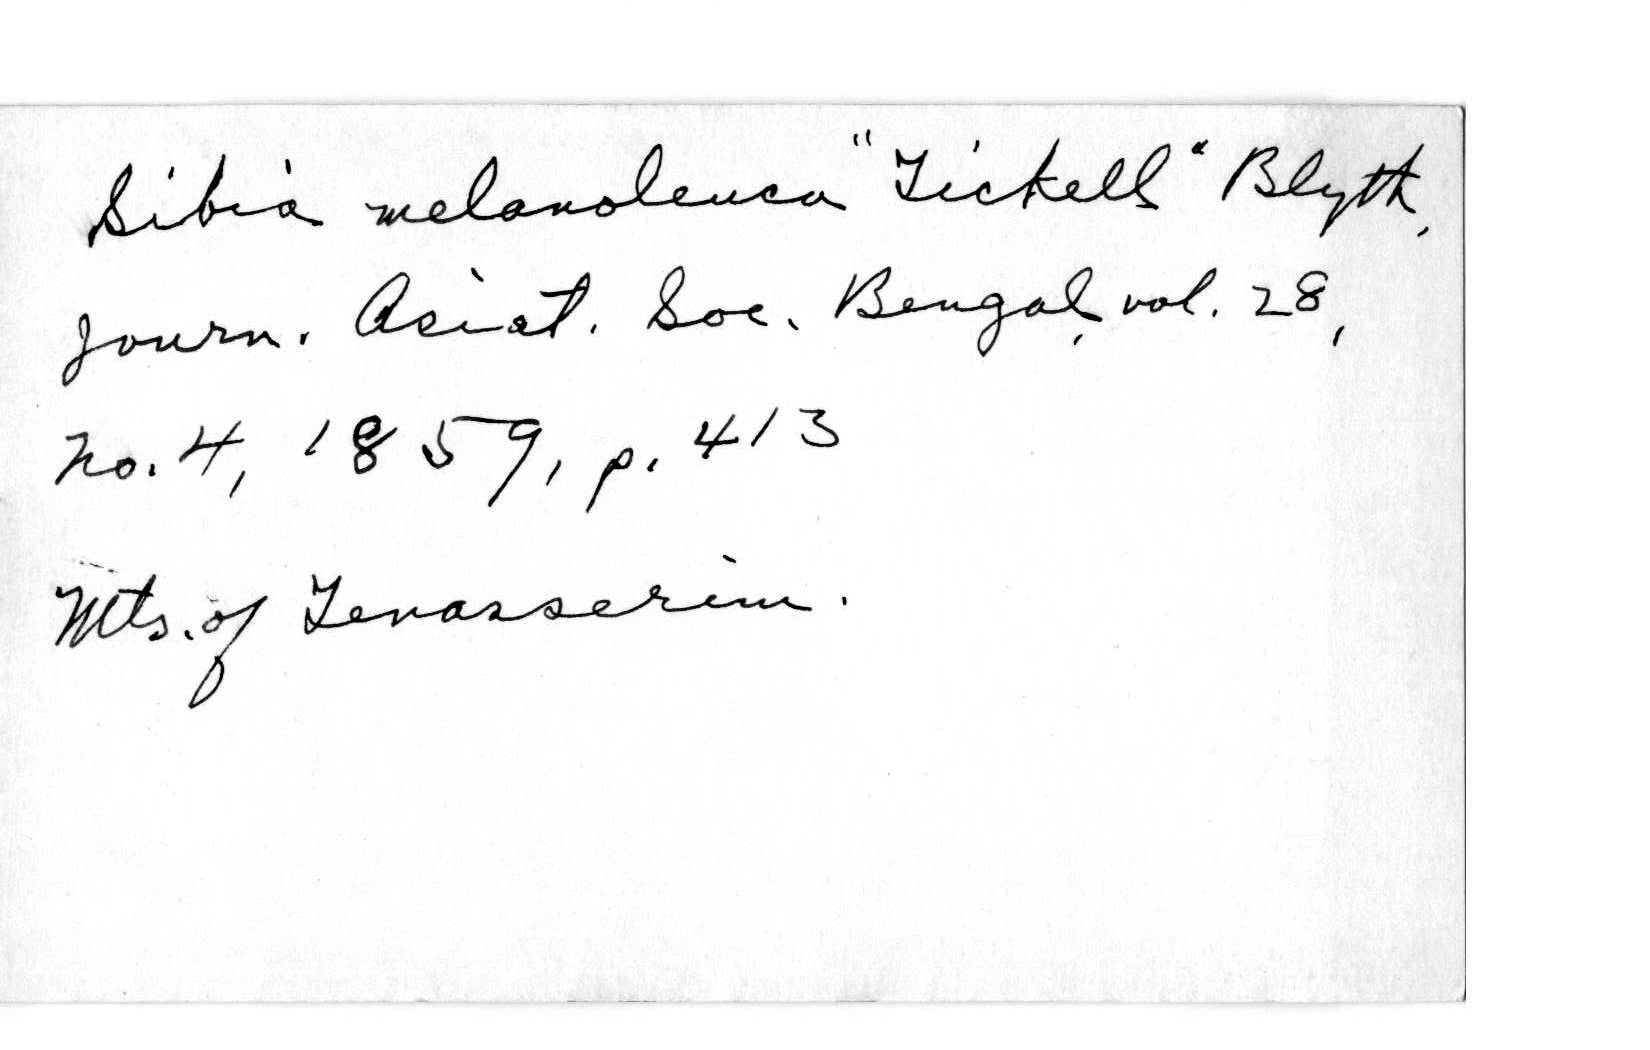 Sibia melanoleuca "Tickell" Blyth,
Journ. Asiat. Soc. Bengal, vol. 28,
no. 4, 1859, p. 413
Mts. of Tenasserim.